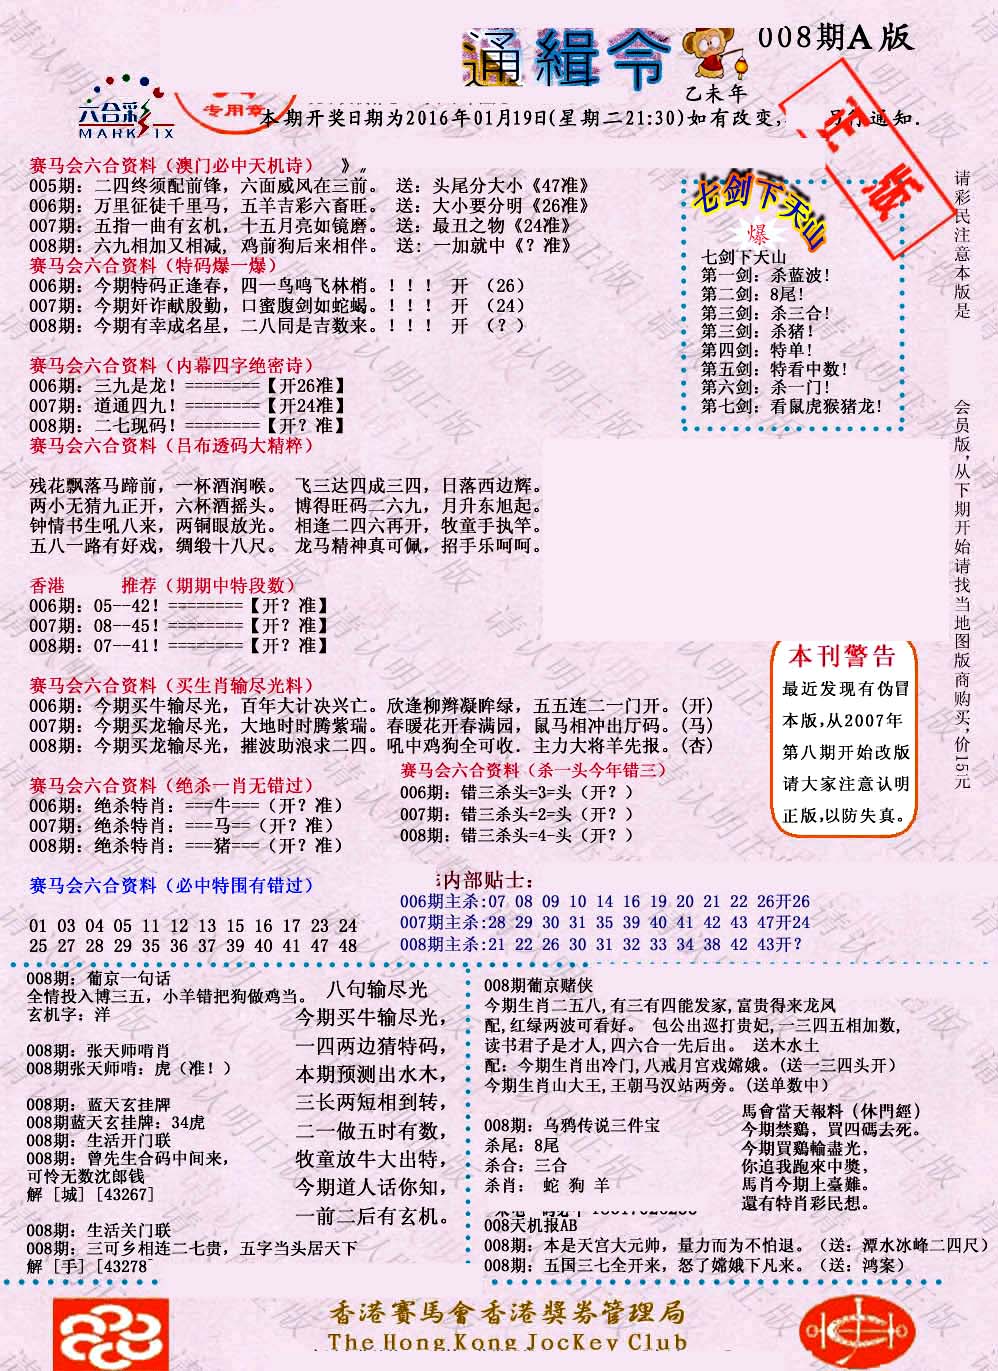 通緝令
008期A版
乙未年
专用章
六合彩
MARK SIX
本期开奖日期为2016年01月19日(星期二21:30)如有改变,
通知.
赛马会六合资料（澳门必中天机诗）　》
005期：二四终须配前锋，六面威风在三前。 送：头尾分大小《47准》
006期：万里征徒千里马，五羊吉彩六畜旺。 送：大小要分明《26准》
007期：五指一曲有玄机，十五月亮如镜磨。 送：最丑之物《24准》
008期：六九相加又相减，鸡前狗后来相伴。 送：一加就中《？准》
赛马会六合资料（特码爆一爆）
006期：今期特码正逢春，四一鸟鸣飞林梢。！！！ 开 （26）
007期：今期奸诈献殷勤，口蜜腹剑如蛇蝎。！！！ 开 （24）
008期：今期有幸成名星，二八同是吉数来。！！！ 开 （？）
赛马会六合资料（内幕四字绝密诗）
006期：三九是龙！========【开26准】
007期：道通四九！========【开24准】
008期：二七现码！========【开？准】
赛马会六合资料（吕布透码大精粹）
残花飘落马蹄前，一杯酒润喉。 飞三达四成三四，日落西边辉。
两小无猜九正开，六杯酒摇头。 博得旺码二六九，月升东旭起。
钟情书生吼八来，两铜眼放光。 相逢二四六再开，牧童手执竿。
五八一路有好戏，绸缎十八尺。 龙马精神真可佩，招手乐呵呵。
七剑下天山
爆
七剑下天山
第一剑：杀蓝波!
第二剑：8尾!
第三剑：杀三合!
第三剑：杀猪!
第四剑：特单!
第五剑：特看中数!
第六剑：杀一门!
第七剑：看鼠虎猴猪龙!
请彩民注意本版是
会员版,从下期开始请找当地图版商购买,价15元
香港　　　推荐（期期中特段数）
006期：05--42！========【开？准】
007期：08--45！========【开？准】
008期：07--41！========【开？准】
赛马会六合资料（买生肖输尽光料）
006期：今期买牛输尽光，百年大计决兴亡。欣逢柳辫凝眸绿，五五连二一门开。(开)
007期：今期买龙输尽光，大地时时腾紫瑞。春暖花开春满园，鼠马相冲出厅码。(马)
008期：今期买龙输尽光，摧波助浪求二四。吼中鸡狗全可收．主力大将羊先报。(杏)
本刊警告
最近发现有伪冒
本版,从2007年
第八期开始改版
请大家注意认明
正版,以防失真。
赛马会六合资料（绝杀一肖无错过）
006期：绝杀特肖：===牛===（开？准）
007期：绝杀特肖：===马==（开？准）
008期：绝杀特肖：===猪===（开？准）
赛马会六合资料（杀一头今年错三）
006期：错三杀头=3=头（开？）
007期：错三杀头=2=头（开？）
008期：错三杀头=4-头（开？）
赛马会六合资料（必中特围有错过）
01 03 04 05 11 12 13 15 16 17 23 24
25 27 28 29 35 36 37 39 40 41 47 48
内部贴士：
006期主杀:07 08 09 10 14 16 19 20 21 22 26开26
007期主杀:28 29 30 31 35 39 40 41 42 43 47开24
008期主杀:21 22 26 30 31 32 33 34 38 42 43开?
008期：葡京一句话
全情投入博三五，小羊错把狗做鸡当。
玄机字：洋
008期：张天师啃肖
008期张天师啃：虎（准！）
008期：蓝天玄挂牌
008期蓝天玄挂牌：34虎
008期：生活开门联
008期：曾先生合码中间来，
可怜无数沈郎钱
解 [城] [43267]
008期：生活关门联
008期：三可乡相连二七贵，五字当头居天下
解 [手] [43278
八句输尽光
今期买牛输尽光，
一四两边猜特码，
本期预测出水木，
三长两短相到转，
二一做五时有数，
牧童放牛大出特，
今期道人话你知，
一前二后有玄机。
008期葡京赌侠
今期生肖二五八,有三有四能发家,富贵得来龙凤
配,红绿两波可看好。 包公出巡打贵妃,一三四五相加数,
读书君子是才人,四六合一先后出。 送木水土
配：今期生肖出冷门,八戒月宫戏嫦娥。(送一三四头开）
今期生肖山大王,王朝马汉站两旁。(送单数中）
008期：乌鸦传说三件宝
杀尾：8尾
杀合：三合
杀肖： 蛇 狗 羊
馬會當天報料（休門經）
今期禁鷄，買四碼去死。
今期買鷄輸盡光，
你追我跑來中獎，
馬肖今期上臺難。
還有特肖彩民想。
008天机报AB
008期：本是天宫大元帅，量力而为不怕退。（送：潭水冰峰二四尺）
008期：五国三七全开来，怒了嫦娥下凡来。（送：鸿案）
香港賽馬會香港獎券管理局
The Hong Kong Jockey Club
请认明正版